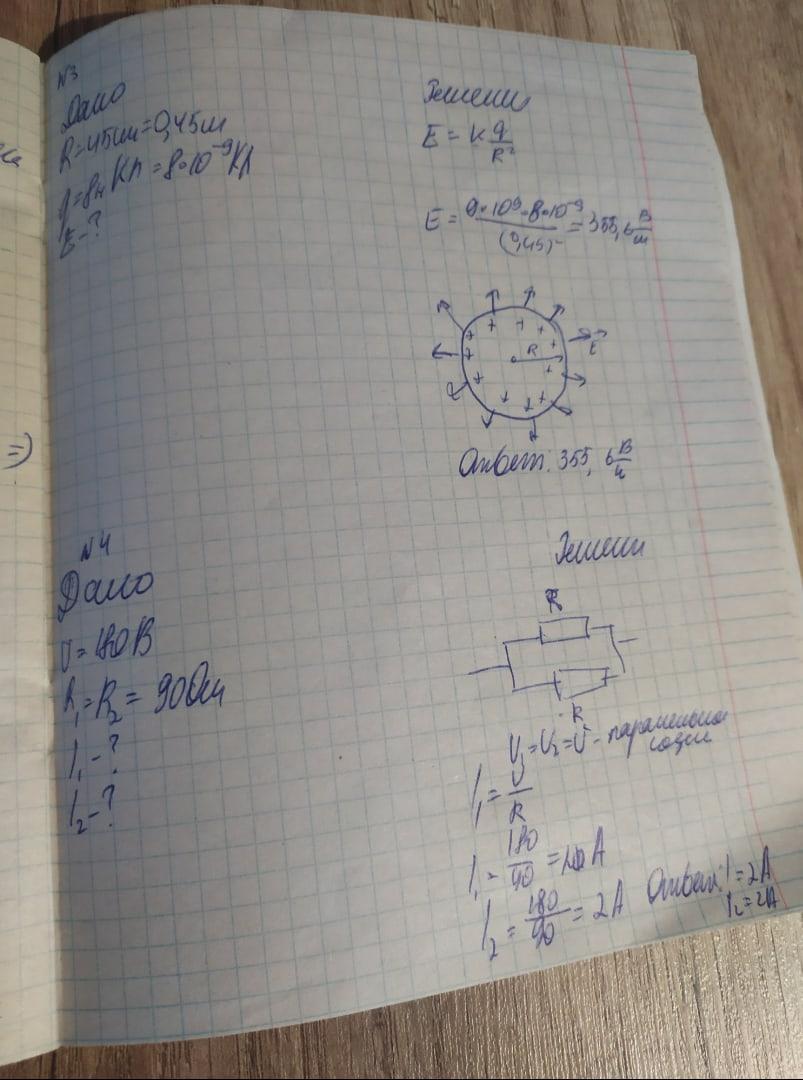 N3
Дано
R=45см=0,45м
q=8н Кл=8•10⁻⁹Кл
E-?
Решени
E = k q/R²
E = 9•10⁹•8•10⁻⁹/(0,45)² = 355,6 В/м
+ + + + + + + + + + + +
R
E
Ответ: 355, 6 В/м
=)
N4
Дано
U=180В
R₁=R₂=90Ом
I₁-?
I₂-?
Решени
R
R
U₁=U₂=U - параллельно
I₁=U/R
I₁=180/90=2A
I₂=180/90=2A
Ответ: I=2A
I₂=2A